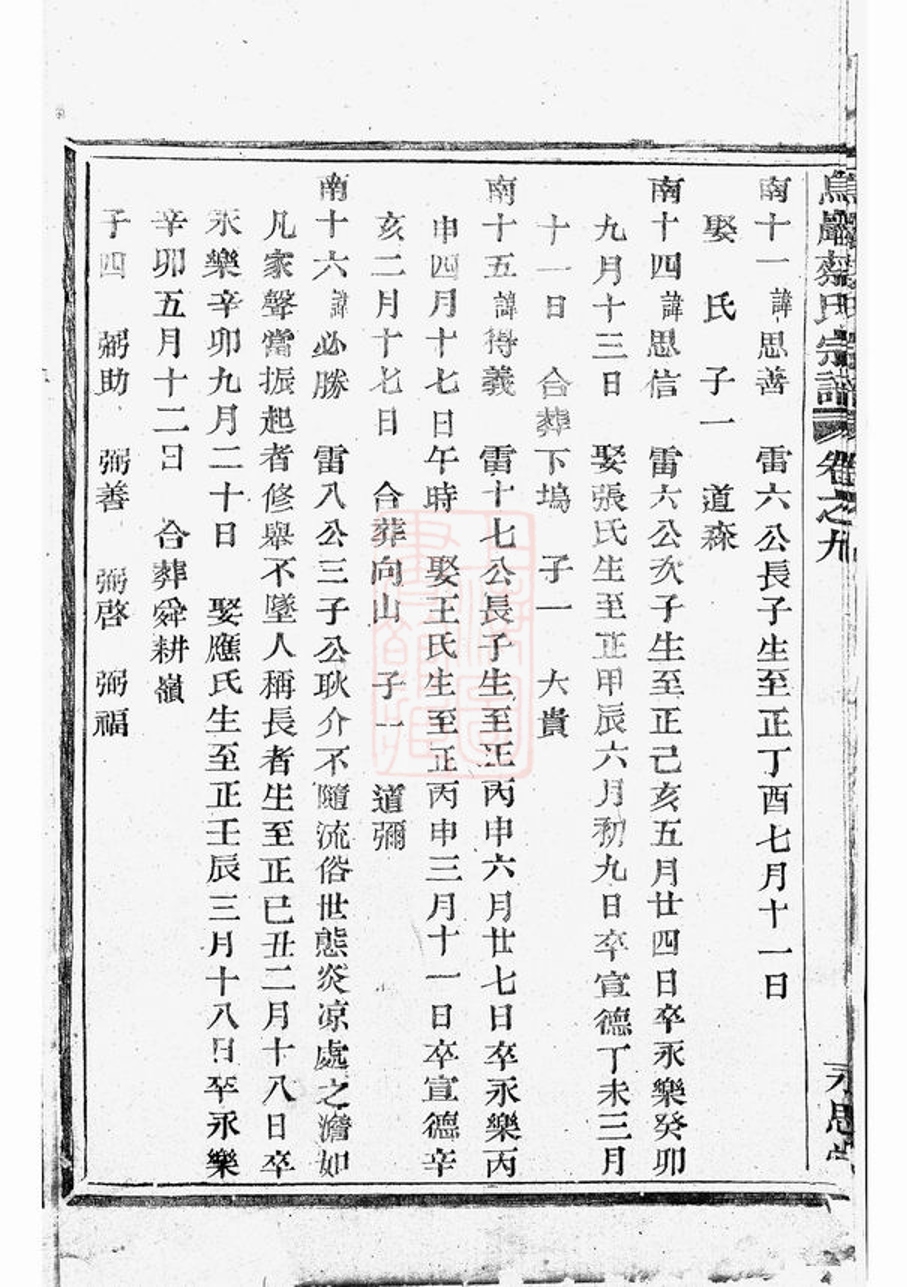 蔡氏宗譜 卷之九
南十一 諱思善 雷六公長子生至正丁酉七月十一日
娶 氏 子一 道森
南十四 諱思信 雷六公次子生至正己亥五月廿四日卒永樂癸卯
九月十三日 娶張氏生至正甲辰六月初九日卒宣德丁未三月
十一日 合葬下塢 子一 大貴
南十五 諱得義 雷十七公長子生至正丙申六月廿七日卒永樂丙
申四月十七日午時 娶王氏生至正丙申三月十一日卒宣德辛
亥二月十七日 合葬向山 子一 道彌
南十六 諱必勝 雷八公三子公耿介不隨流俗世態炎凉處之澹如
凡家聲當振起者修舉不墜人稱長者生至正己丑二月十八日卒
永樂辛卯九月二十日 娶應氏生至正壬辰三月十八日卒永樂
辛卯五月十二日 合葬舜耕嶺
子四 弼助 弼善 弼啓 弼福